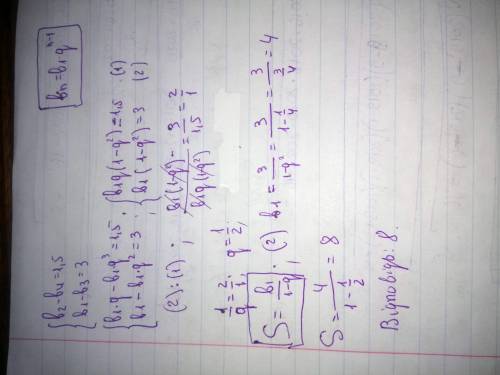 bₙ=b₁q^(n-1)
{b₂-b₄=1,5
{b₁-b₃=3
{b₁·q-b₁q³=1,5 ; {b₁q(1-q²)=1,5 (1)
{b₁-b₁q²=3 ; {b₁(1-q²)=3 (2)
(2):(1) ; b₁(1-q²)/b₁q(1-q²) = 3/1,5 = 2/1
1/q = 2/1 ; q=1/2 ;
S = b₁/(1-q) ; (2) b₁ = 3/(1-q²) = 3/(1-1/4) = 3/(3/4) = 4
S = 4/(1-1/2) = 8
Відповідь: 8.